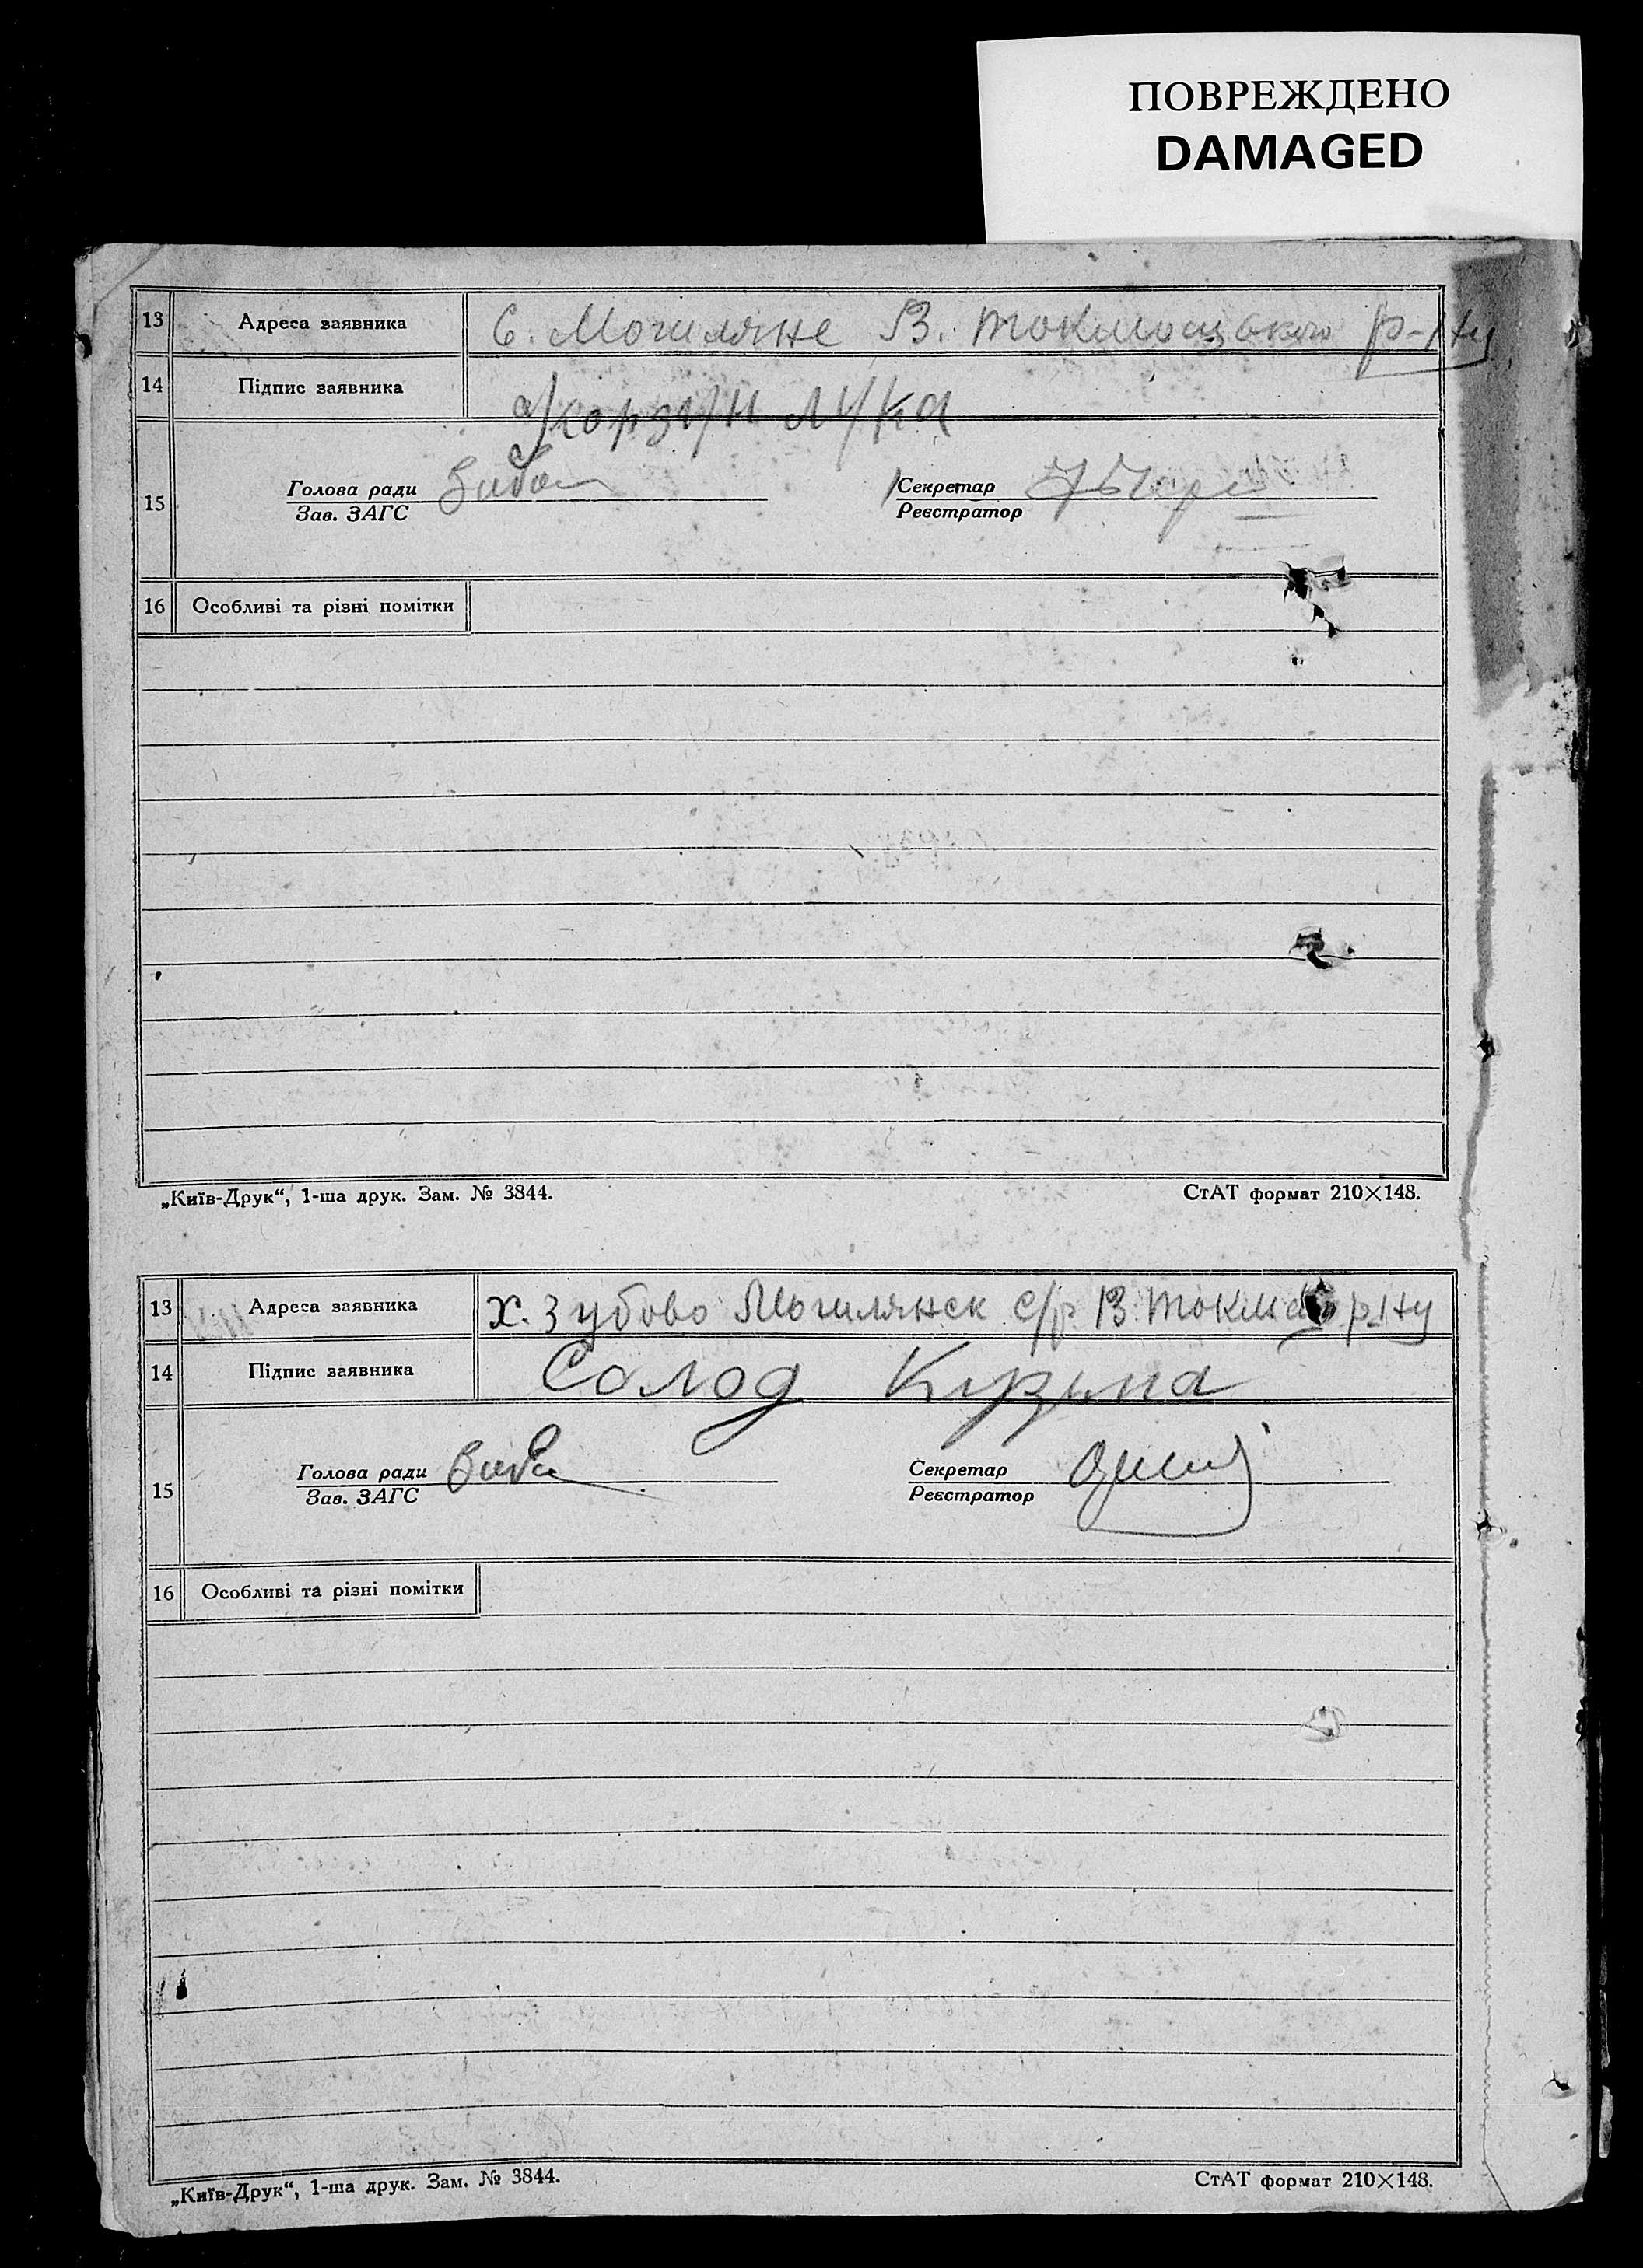 ПОВРЕЖДЕНО
DAMAGED
13 Адреса заявника С. Могиляне В. Токмацького р-ну
14 Підпис заявника Корзун Лука
15 Голова ради Секретар
Зав. ЗАГС Реєстратор
16 Особливі та різні помітки
„Київ-Друк“, 1-ша друк. Зам. № 3844. СтАТ формат 210×148.
13 Адреса заявника х. Зубово Могилянск с/р В. Токма р-ну
14 Підпис заявника Солод Кузьма
15 Голова ради Секретар
Зав. ЗАГС Реєстратор
16 Особливі та різні помітки
„Київ-Друк“, 1-ша друк. Зам. № 3844. СтАТ формат 210×148.